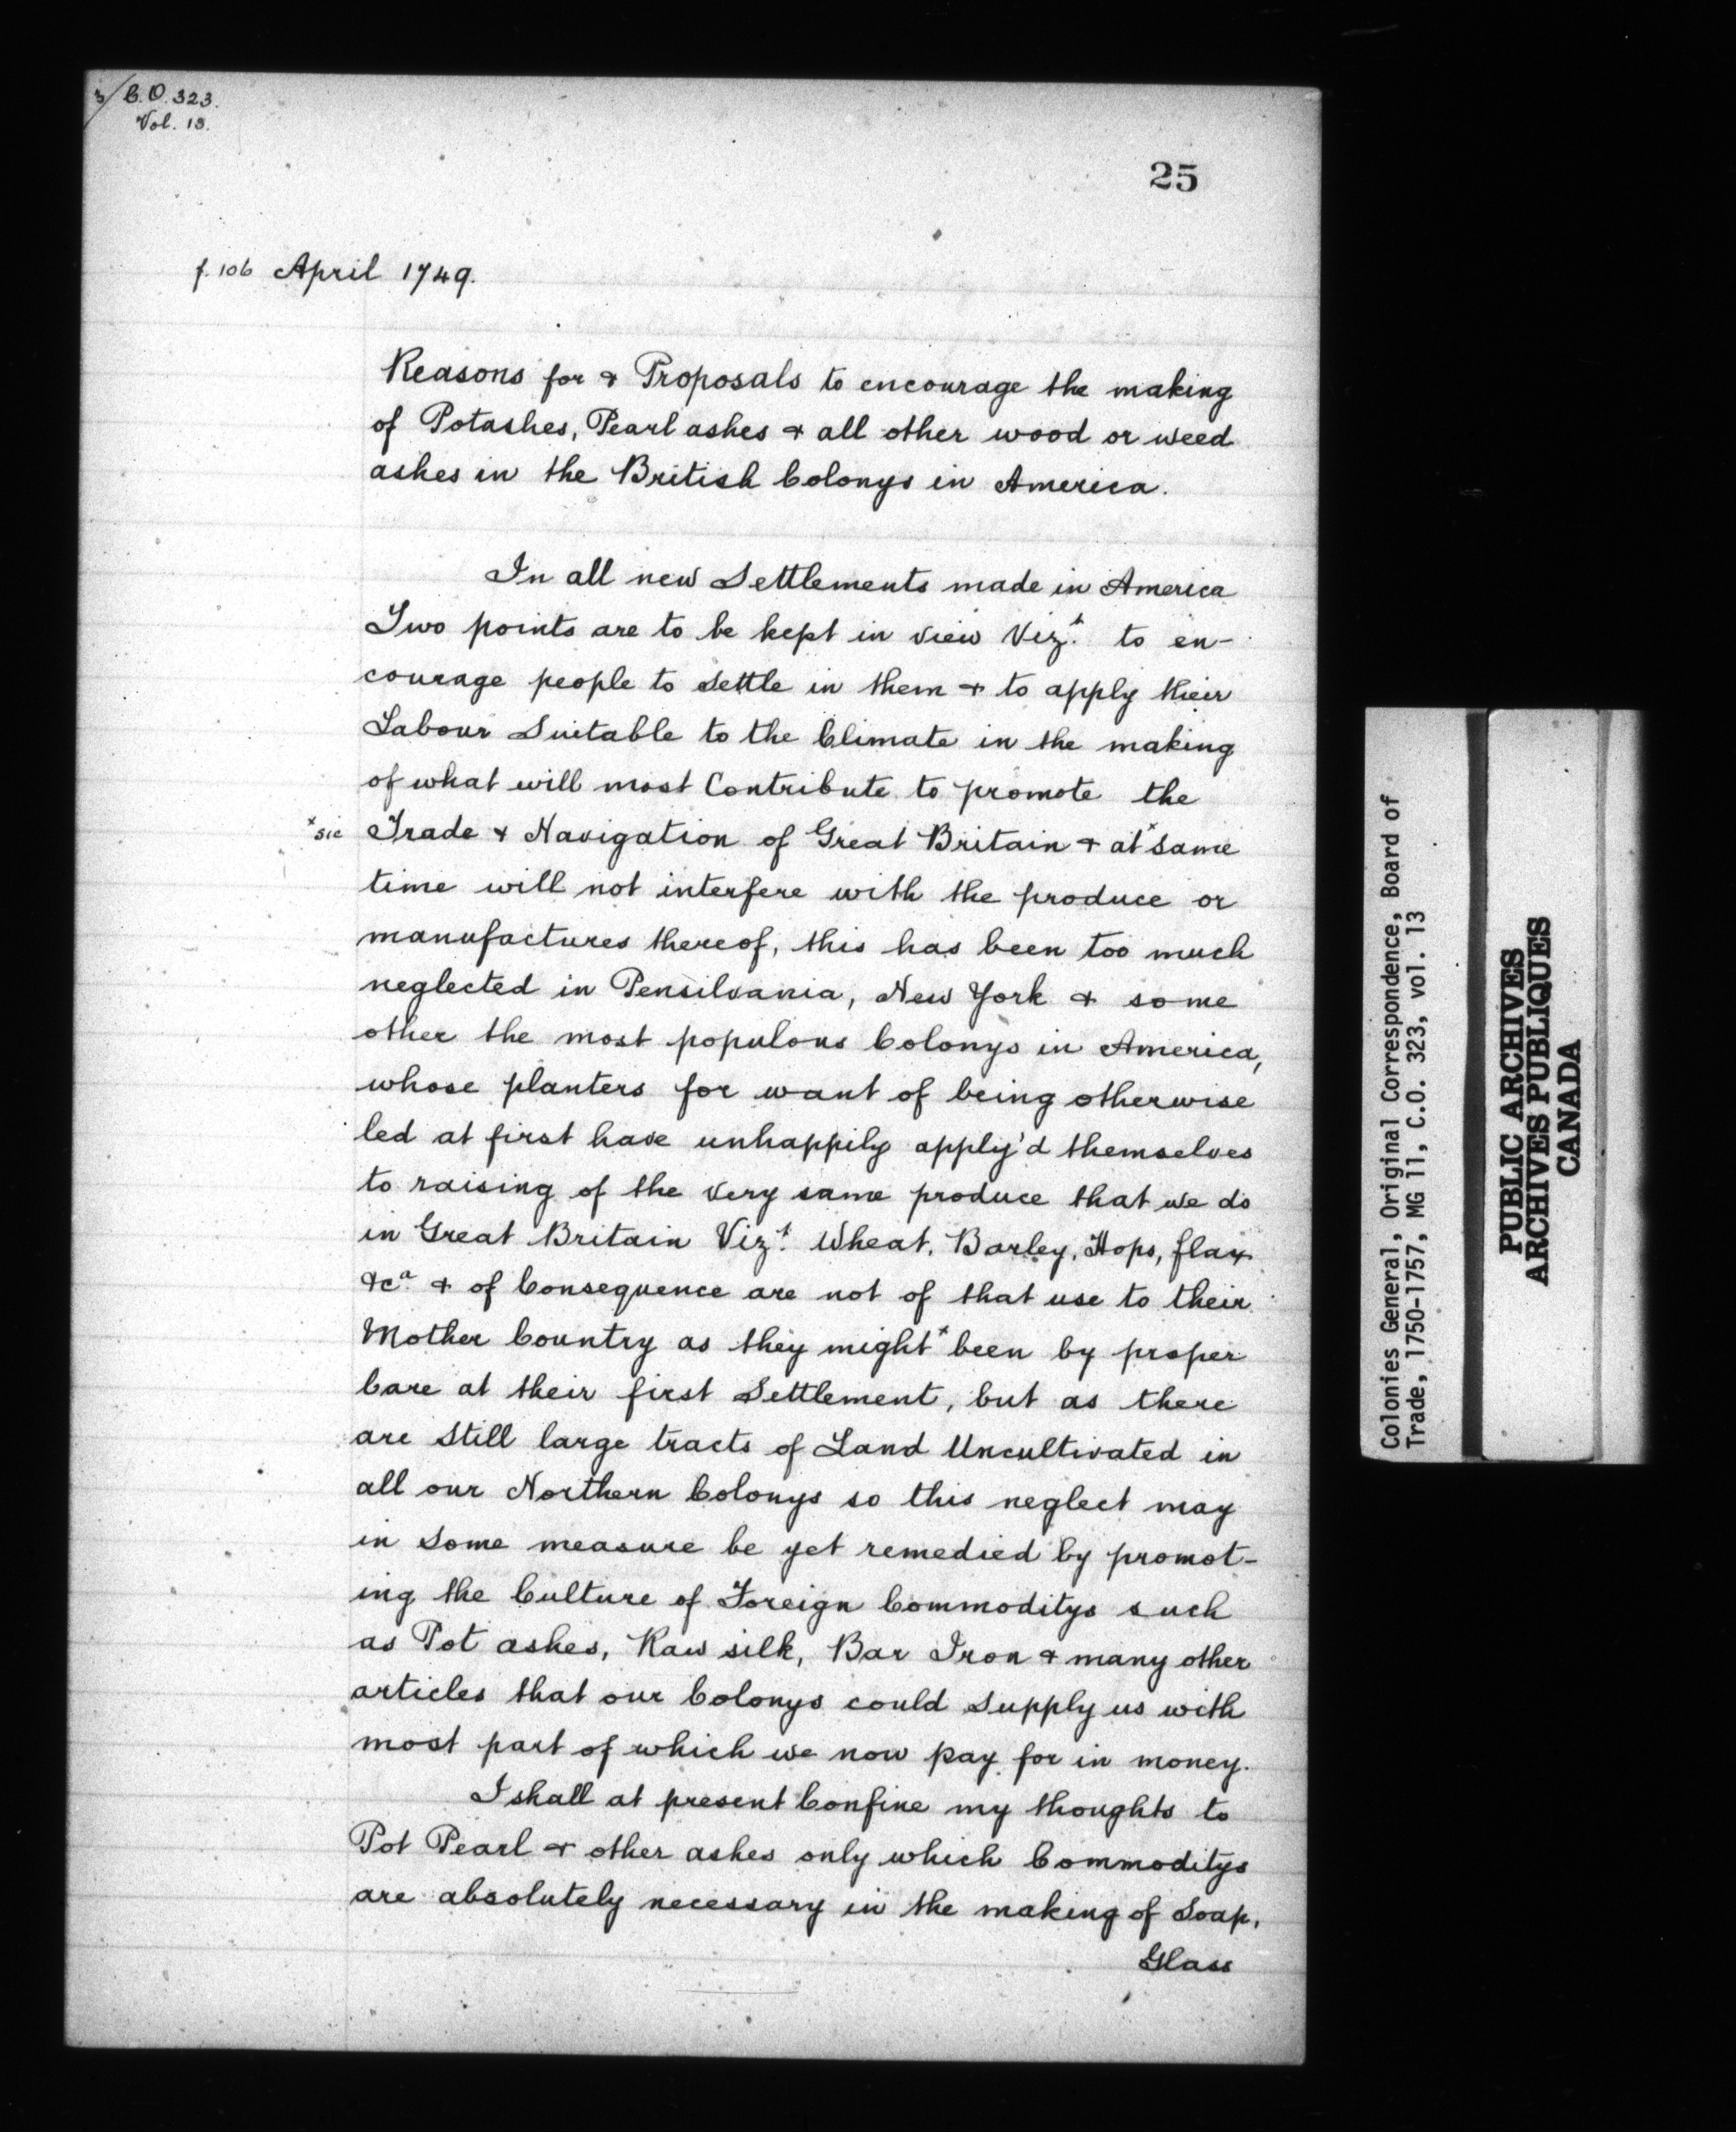 3/ C.O. 323.
Vol. 13.
25
f. 106 April 1749.
Reasons for & Proposals to encourage the making
of Potashes, Pearl ashes & all other wood or weed
ashes in the British Colonys in America.
In all new Settlements made in America
Two points are to be kept in view Vizt. to en-
courage people to settle in them & to apply their
Labour Suitable to the Climate in the making
of what will most Contribute to promote the
*sic Trade & Navigation of Great Britain & at* same
time will not interfere with the produce or
manufactures thereof, this has been too much
neglected in Pensilvania, New York & some
other the most populous Colonys in America,
whose planters for want of being otherwise
led at first have unhappily apply'd themselves
to raising of the very same produce that we do
in Great Britain Vizt. Wheat, Barley, Hops, flax
&ca. & of Consequence are not of that use to their
Mother Country as they might* been by proper
Care at their first Settlement, but as there
are still large tracts of Land Uncultivated in
all our Northern Colonys so this neglect may
in some measure be yet remedied by promot-
ing the Culture of Foreign Commoditys such
as Pot ashes, Raw silk, Bar Iron & many other
articles that our Colonys could supply us with
most part of which we now pay for in money.
I shall at present Confine my thoughts to
Pot Pearl & other ashes only which Commoditys
are absolutely necessary in the making of Soap,
Glass
Colonies General, Original Correspondence, Board of
Trade, 1750-1757, MG 11, C.O. 323, vol. 13
PUBLIC ARCHIVES
ARCHIVES PUBLIQUES
CANADA